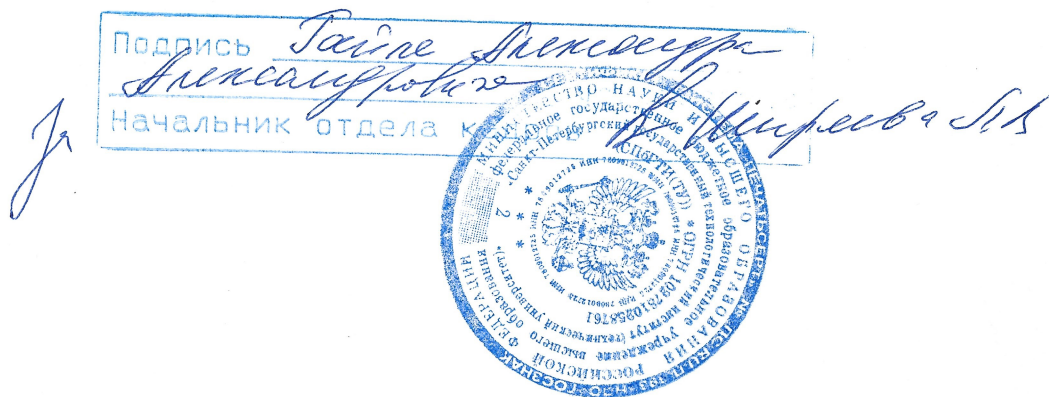 Подпись Гайле Александра
Александровича
За
Начальник отдела к
Ширяева ЛВ
МИНИСТЕРСТВО НАУКИ И ВЫСШЕГО ОБРАЗОВАНИЯ РОССИЙСКОЙ ФЕДЕРАЦИИ
федеральное государственное бюджетное образовательное учреждение высшего образования
«Санкт-Петербургский государственный технологический институт (технический университет)»
СПбГТИ(ТУ) * ОГРН 1027810258761
* 2 *